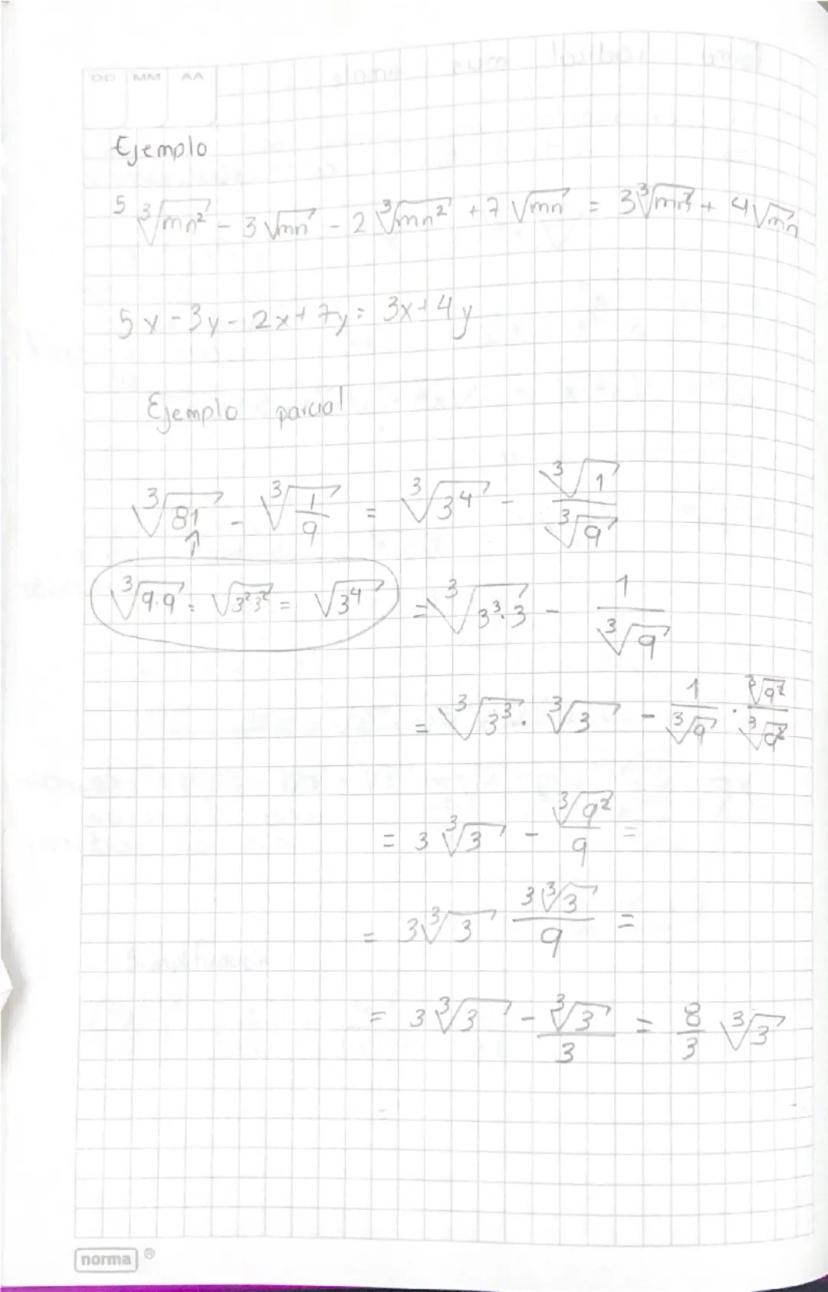 DD MM AA
Ejemplo
5 ∛(mn²) - 3 √(mn) - 2 ∛(mn²) + 7 √(mn) = 3 ∛(mn²) + 4 √(mn)
5x - 3y - 2x + 7y = 3x + 4y
Ejemplo parcial
∛81 - ∛(1/9) = ∛(3⁴) - ∛1/∛9
∛(9·9) = √(3²3²) = √(3⁴) = ∛(3³·3) - 1/∛9
= ∛(3³) · ∛3 - 1/∛9 · ∛(9²)/∛(9²)
= 3 ∛3 - ∛(9²)/9 =
= 3 ∛3 3∛3/9 =
= 3 ∛3 - ∛3/3 = 8/3 ∛3
norma ®